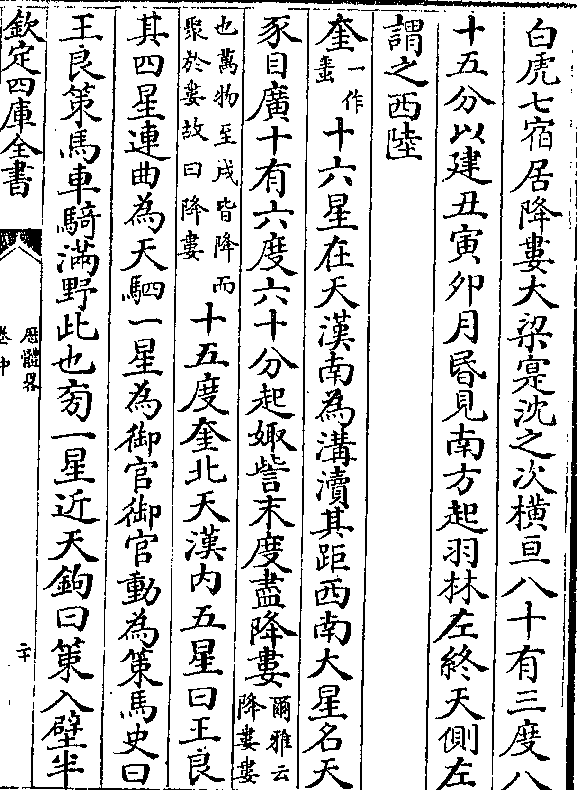 白虎七宿居降婁大梁寔沈之次横亘八十有三度八
十五分以建丑寅卯月昏見南方起羽林左終天側左
謂之西陸
奎一作𡙇十六星在天漢南為溝瀆其距西南大星名天
豕目廣十有六度六十分起娵訾末度盡降婁爾雅云降婁婁
也萬物至戌皆降而聚於婁故曰降婁十五度奎北天漢内五星曰王良
其四星連曲為天駟一星為御官御官動為策馬史曰
王良策馬車騎滿野此也旁一星近天鉤曰策入壁半
欽定四庫全書
厯體畧
卷中
二十